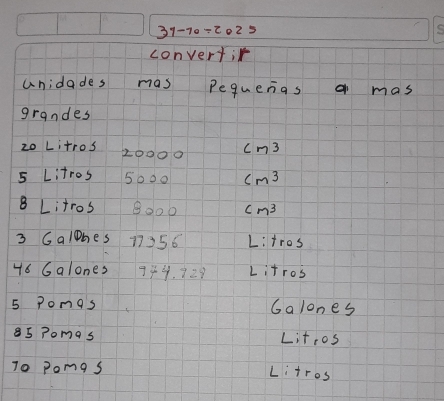 31-10-2025
convertir
unidades mas Pequeñas a mas
grandes
20 Litros 20000 cm3
5 Litros 5000 cm3
8 Litros 8000 cm3
3 Galones 11356 Litros
46 Galones Litros
5 Pomas Galones
85 Pomas Litros
10 Pomas Litros